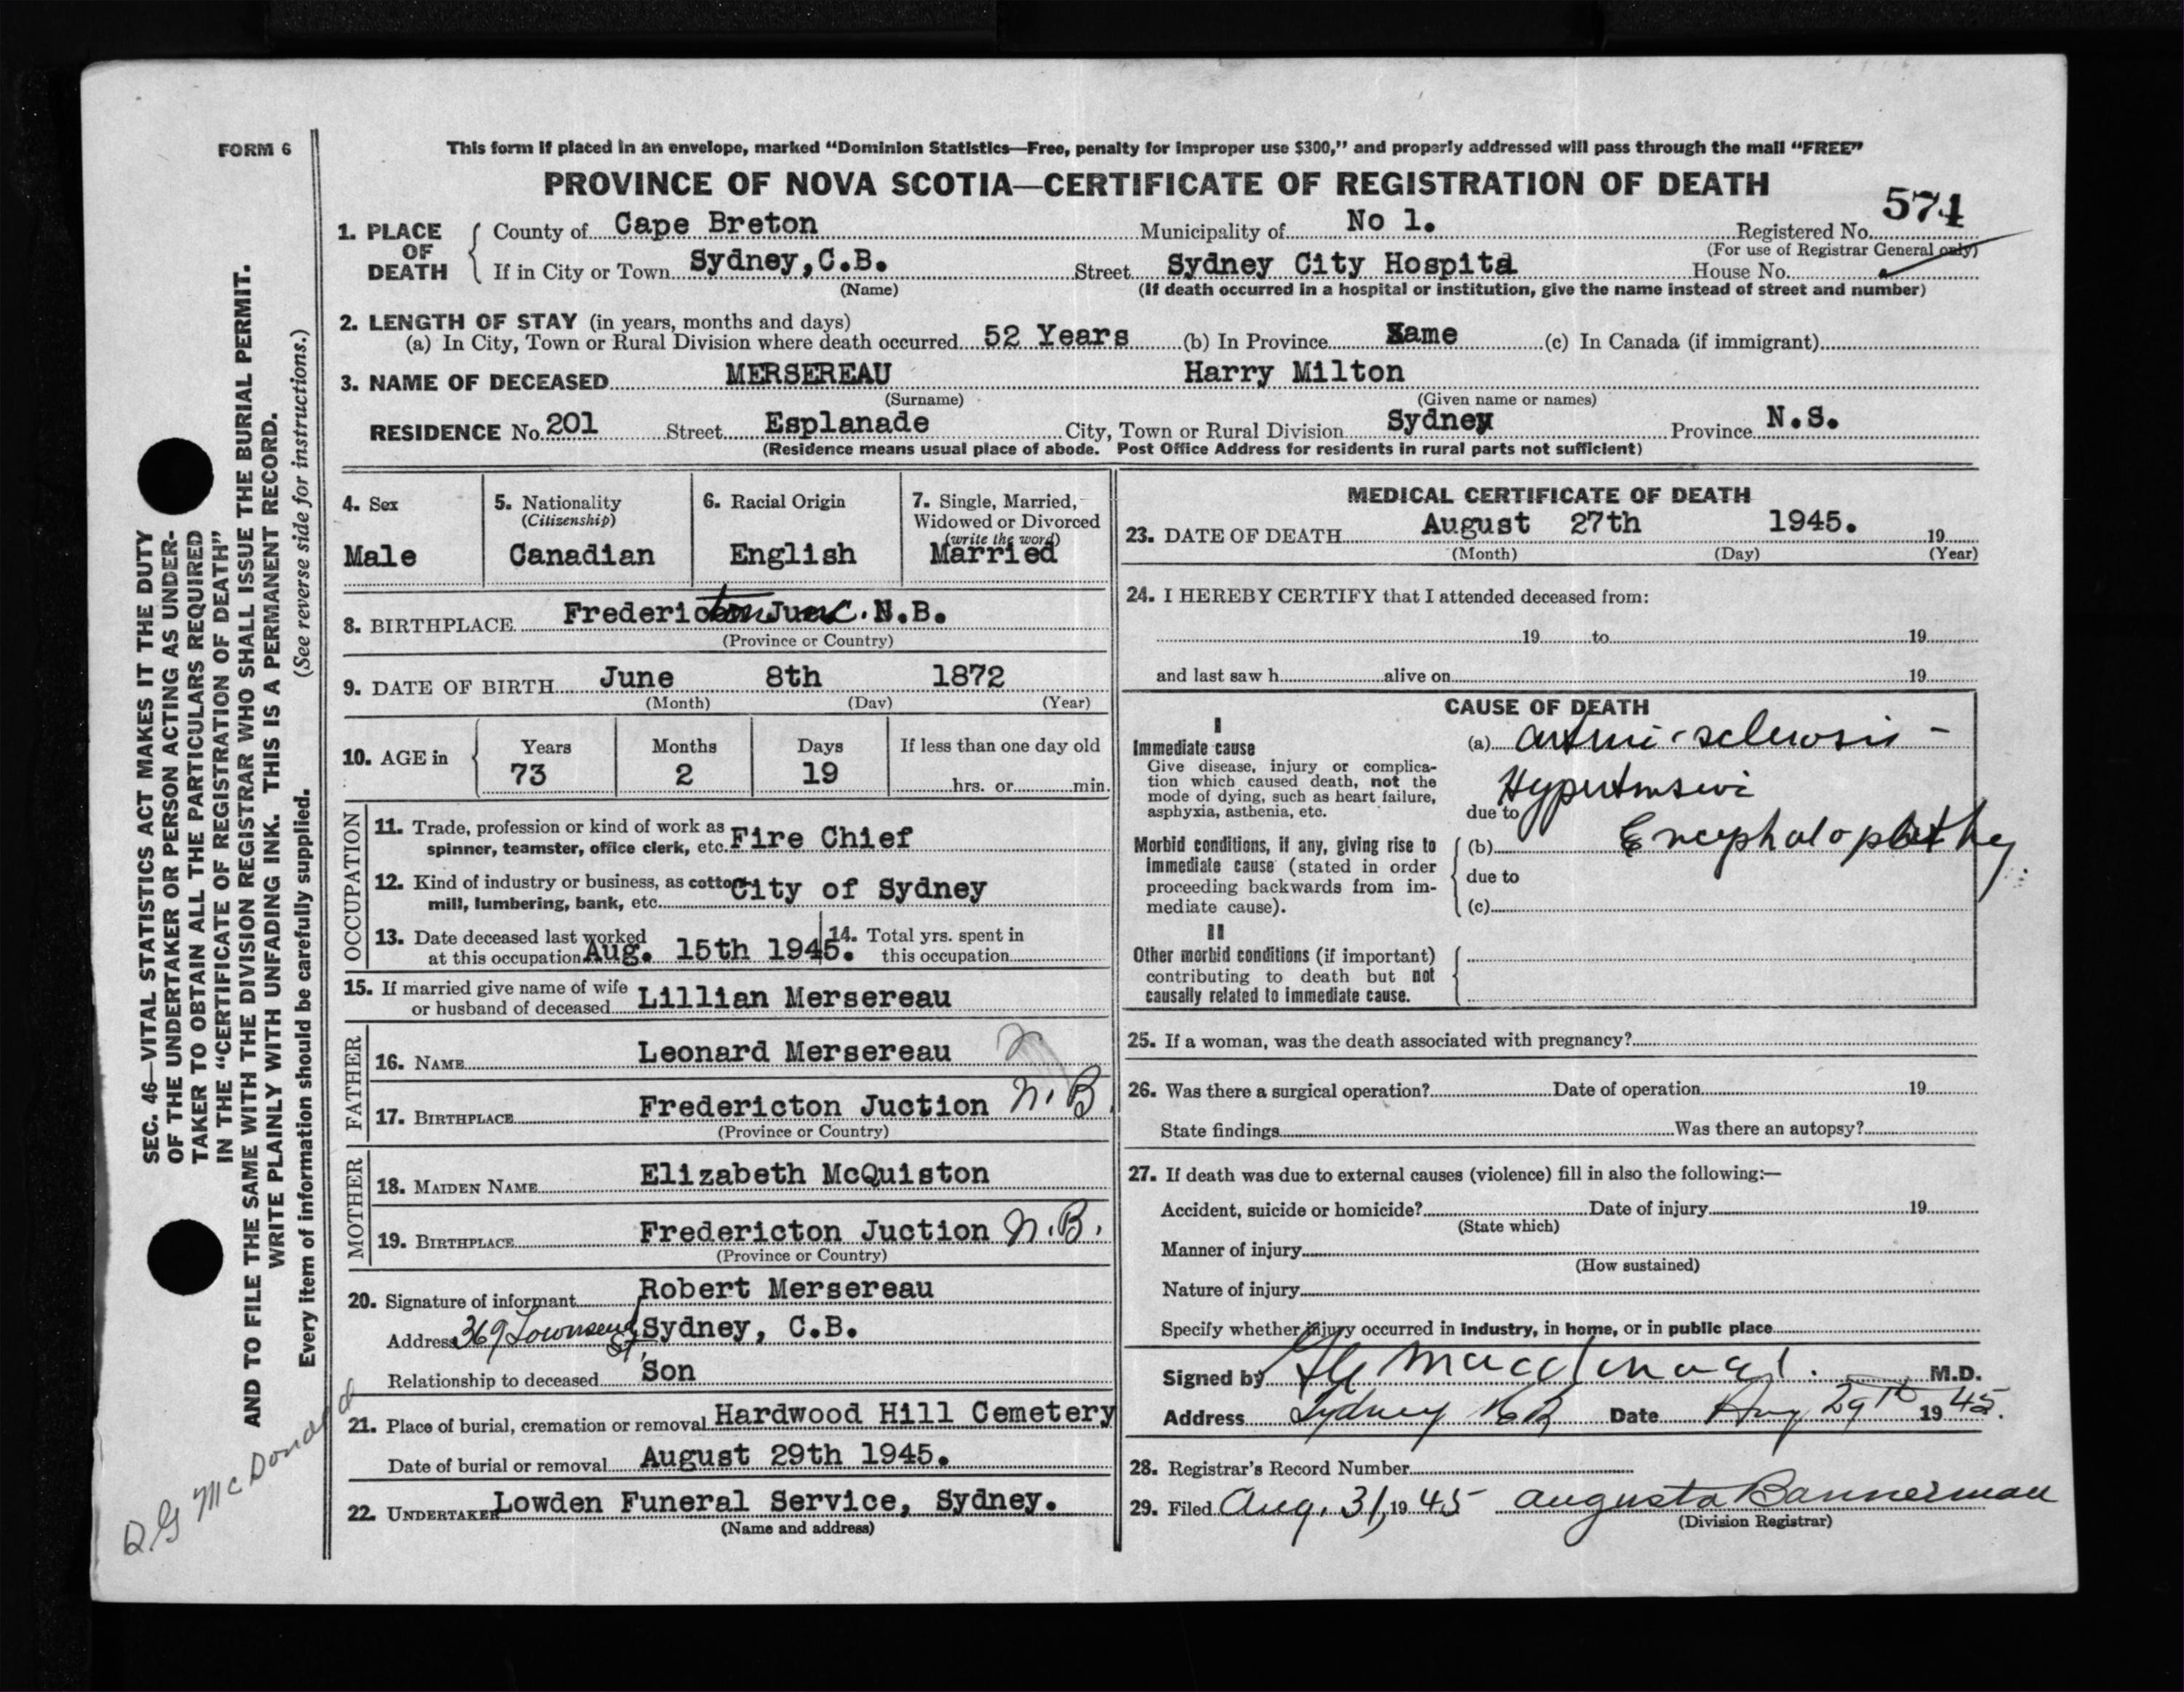 FORM 6
This form if placed in an envelope, marked “Dominion Statistics—Free, penalty for improper use $300,” and properly addressed will pass through the mail “FREE”
PROVINCE OF NOVA SCOTIA—CERTIFICATE OF REGISTRATION OF DEATH
574
1. PLACE OF DEATH
County of Cape Breton Municipality of No 1. Registered No.
(For use of Registrar General only)
If in City or Town Sydney, C.B. Street Sydney City Hospita House No.
(Name) (If death occurred in a hospital or institution, give the name instead of street and number)
2. LENGTH OF STAY (in years, months and days)
(a) In City, Town or Rural Division where death occurred 52 Years (b) In Province Same (c) In Canada (if immigrant)
3. NAME OF DECEASED MERSEREAU Harry Milton
(Surname) (Given name or names)
RESIDENCE No. 201 Street Esplanade City, Town or Rural Division Sydney Province N.S.
(Residence means usual place of abode. Post Office Address for residents in rural parts not sufficient)
SEC. 46—VITAL STATISTICS ACT MAKES IT THE DUTY
OF THE UNDERTAKER OR PERSON ACTING AS UNDER-
TAKER TO OBTAIN ALL THE PARTICULARS REQUIRED
IN THE “CERTIFICATE OF REGISTRATION OF DEATH”
AND TO FILE THE SAME WITH THE DIVISION REGISTRAR WHO SHALL ISSUE THE BURIAL PERMIT.
WRITE PLAINLY WITH UNFADING INK. THIS IS A PERMANENT RECORD.
Every item of information should be carefully supplied. (See reverse side for instructions.)
4. Sex
Male
5. Nationality
(Citizenship)
Canadian
6. Racial Origin
English
7. Single, Married,
Widowed or Divorced
(write the word)
Married
8. BIRTHPLACE Fredericton Junc. N.B.
(Province or Country)
9. DATE OF BIRTH June 8th 1872
(Month) (Day) (Year)
10. AGE in
Years Months Days If less than one day old
73 2 19 hrs. or min.
OCCUPATION
11. Trade, profession or kind of work as
spinner, teamster, office clerk, etc. Fire Chief
12. Kind of industry or business, as cotton
mill, lumbering, bank, etc. City of Sydney
13. Date deceased last worked
at this occupation Aug. 15th 1945.
14. Total yrs. spent in
this occupation
15. If married give name of wife
or husband of deceased Lillian Mersereau
FATHER
16. NAME Leonard Mersereau
17. BIRTHPLACE Fredericton Juction N.B.
(Province or Country)
MOTHER
18. MAIDEN NAME Elizabeth McQuiston
19. BIRTHPLACE Fredericton Juction N.B.
(Province or Country)
20. Signature of informant Robert Mersereau
Address 369 Townsend St, Sydney, C.B.
Relationship to deceased Son
21. Place of burial, cremation or removal Hardwood Hill Cemetery
Date of burial or removal August 29th 1945.
22. UNDERTAKER Lowden Funeral Service, Sydney.
(Name and address)
McDonald
MEDICAL CERTIFICATE OF DEATH
23. DATE OF DEATH August 27th 1945. 19
(Month) (Day) (Year)
24. I HEREBY CERTIFY that I attended deceased from:
19 to 19
and last saw h alive on 19
CAUSE OF DEATH
I
Immediate cause
Give disease, injury or complica-
tion which caused death, not the
mode of dying, such as heart failure,
asphyxia, asthenia, etc.
(a) Arterio-sclerosis -
Hypertensive
due to
Morbid conditions, if any, giving rise to
immediate cause (stated in order
proceeding backwards from im-
mediate cause).
(b) Encephalopathy
due to
(c)
II
Other morbid conditions (if important)
contributing to death but not
causally related to immediate cause.
25. If a woman, was the death associated with pregnancy?
26. Was there a surgical operation? Date of operation 19
State findings Was there an autopsy?
27. If death was due to external causes (violence) fill in also the following:—
Accident, suicide or homicide? Date of injury 19
(State which)
Manner of injury
(How sustained)
Nature of injury
Specify whether injury occurred in industry, in home, or in public place
Signed by Macdonald. M.D.
Address Sydney Date Aug 29th 1945.
28. Registrar's Record Number
29. Filed Aug. 31, 1945 Augusta Bannerman
(Division Registrar)